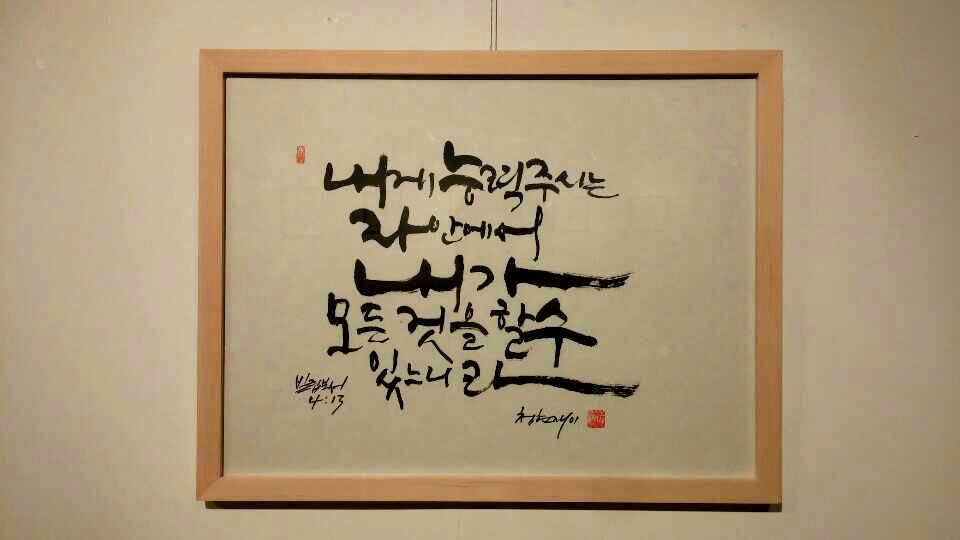 내게 능력주시는
자 안에서
내가
모든 것을 할 수
있느니라
빌립보서
4:13